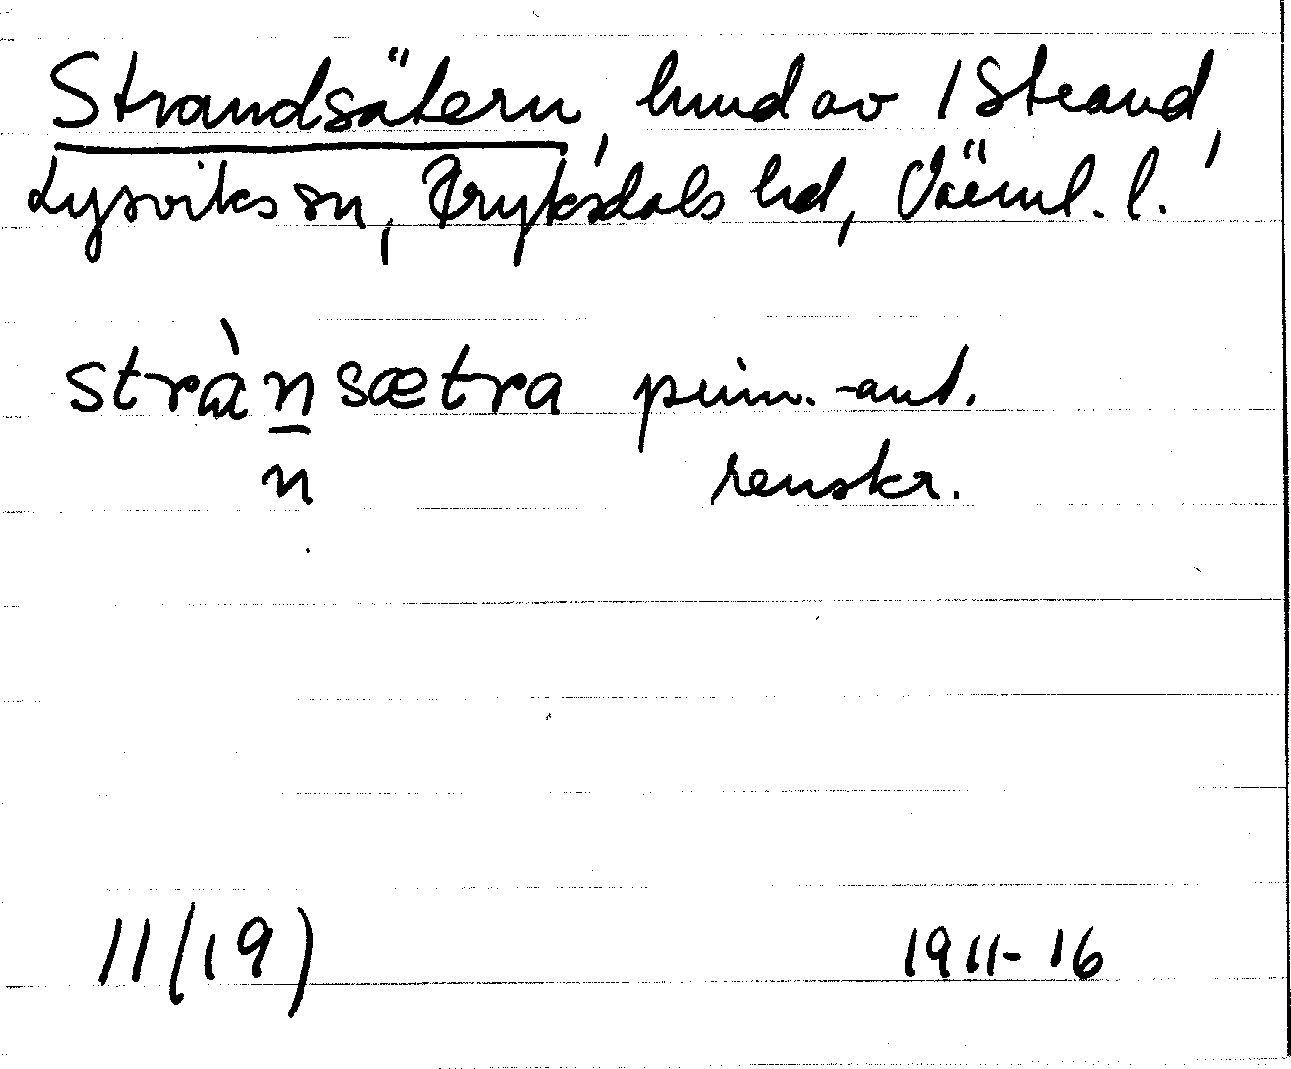 Strandsätern, lund av 1 Strand,
Lysviks sn, Fryksdals hd, Värml. l.
stràn̲sætra prim.-ant.
n renskr.
11/19) 1911-16